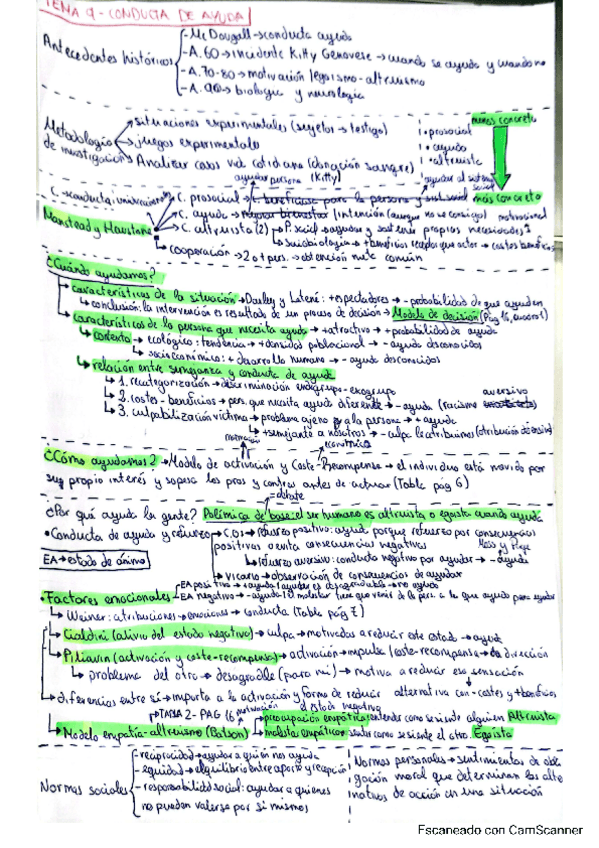 TEMA 9 - CONDUCTA DE AYUDA
Antecedentes históricos
- McDougall → conducta ayuda
- A.60 → incidente Kitty Genovese → cuando se ayuda y cuando no
- A.70-80 → motivación (egoísmo-altruismo
- A.90 → biología y neurología
Metodología de investigación
situaciones experimentales (sujetos → testigo)
juegos experimentales
Analizar casos vida cotidiana (donación sangre) (Kitty)
menos concreto
· prosocial
· ayuda
· altruista
más concreto
ayudar persona
ayudar al sistema social
Manstead y Hewstone
C. prosocial →
C. ayuda → (intención (aunque no se consiga) motivacional
C. altruista (2) → P. social → ayudar y sost. propias necesidades?
Sociobiología → + beneficios receptor que actor → costes beneficios
cooperación → 2 o + pers. → obtención meta común
¿Cuándo ayudamos?
características de la situación → Darley y Latené: + espectadores → - probabilidad de que ayuden
conclusión: la intervención es resultado de un proceso de decisión → Modelo de decisión (Pág 16, cuadro 1)
características de la persona que necesita ayuda → + atractivo → + probabilidad de ayuda
contexto → ecológico: tendencia → + densidad poblacional → - ayuda desconocidos
socioeconómico: + desarrollo humano → - ayuda desconocidos
relación entre semejanza y conducta de ayuda
1. recategorización → discriminación endogrupo-exogrupo
2. costes-beneficios → pers. que necesita ayuda diferente → - ayuda (racismo aversivo
3. culpabilización víctima → problema ajeno a la persona → + ayuda
+ semejante a nosotros → - culpa le atribuimos (atribución defensiva)
motivación económica
¿Cómo ayudamos? → Modelo de activación y Coste-Recompensa → el individuo está movido por
su propio interés y sopesa los pros y contras antes de actuar (Table pág 6)
= debate
¿Por qué ayuda la gente? Polémica de base: el ser humano es altruista o egoísta cuando ayuda
· Conducta de ayuda y refuerzo → C.O. → refuerzo positivo: ayuda porque refuerzo por consecuencias
positivas o evita consecuencias negativas
refuerzo aversivo: conducta negativa por ayudar → - ayuda
vicario → observación de consecuencias de ayudar
EA → estado de ánimo
· Factores emocionales
EA positivo → + ayuda (ayudar es desagradable → no ayuda
EA negativo → - ayuda (el malestar tiene que venir de la pers. a la que ayuda para ayudar
Weiner: atribuciones → emociones → conducta (Table pág 7)
Cialdini (alivio del estado negativo) → culpa → motivados a reducir este estado → ayuda
Piliavin (activación y coste-recompensa) → activación → impulsa (coste-recompensa → da dirección
problema del otro → desagradable (para mí) → motiva a reducir esa sensación
diferencias entre sí → importa la activación y forma de reducir el estado negativo
alternativa con - costes y + beneficios
TABLA 2 - PAG 16 motivación
Modelo empatía-altruismo (Batson)
preocupación empática: entender como se siente alguien Altruista
malestar empático: sentir como se siente el otro Egoísta
Normas sociales
- reciprocidad → ayudar a quien nos ayuda
- equidad → el equilibrio entre aporte y recepción
- responsabilidad social: ayudar a quienes
no pueden valerse por sí mismos
Normas personales → sentimientos de obli
gación moral que determinan las alter
nativas de acción en una situación
Escaneado con CamScanner